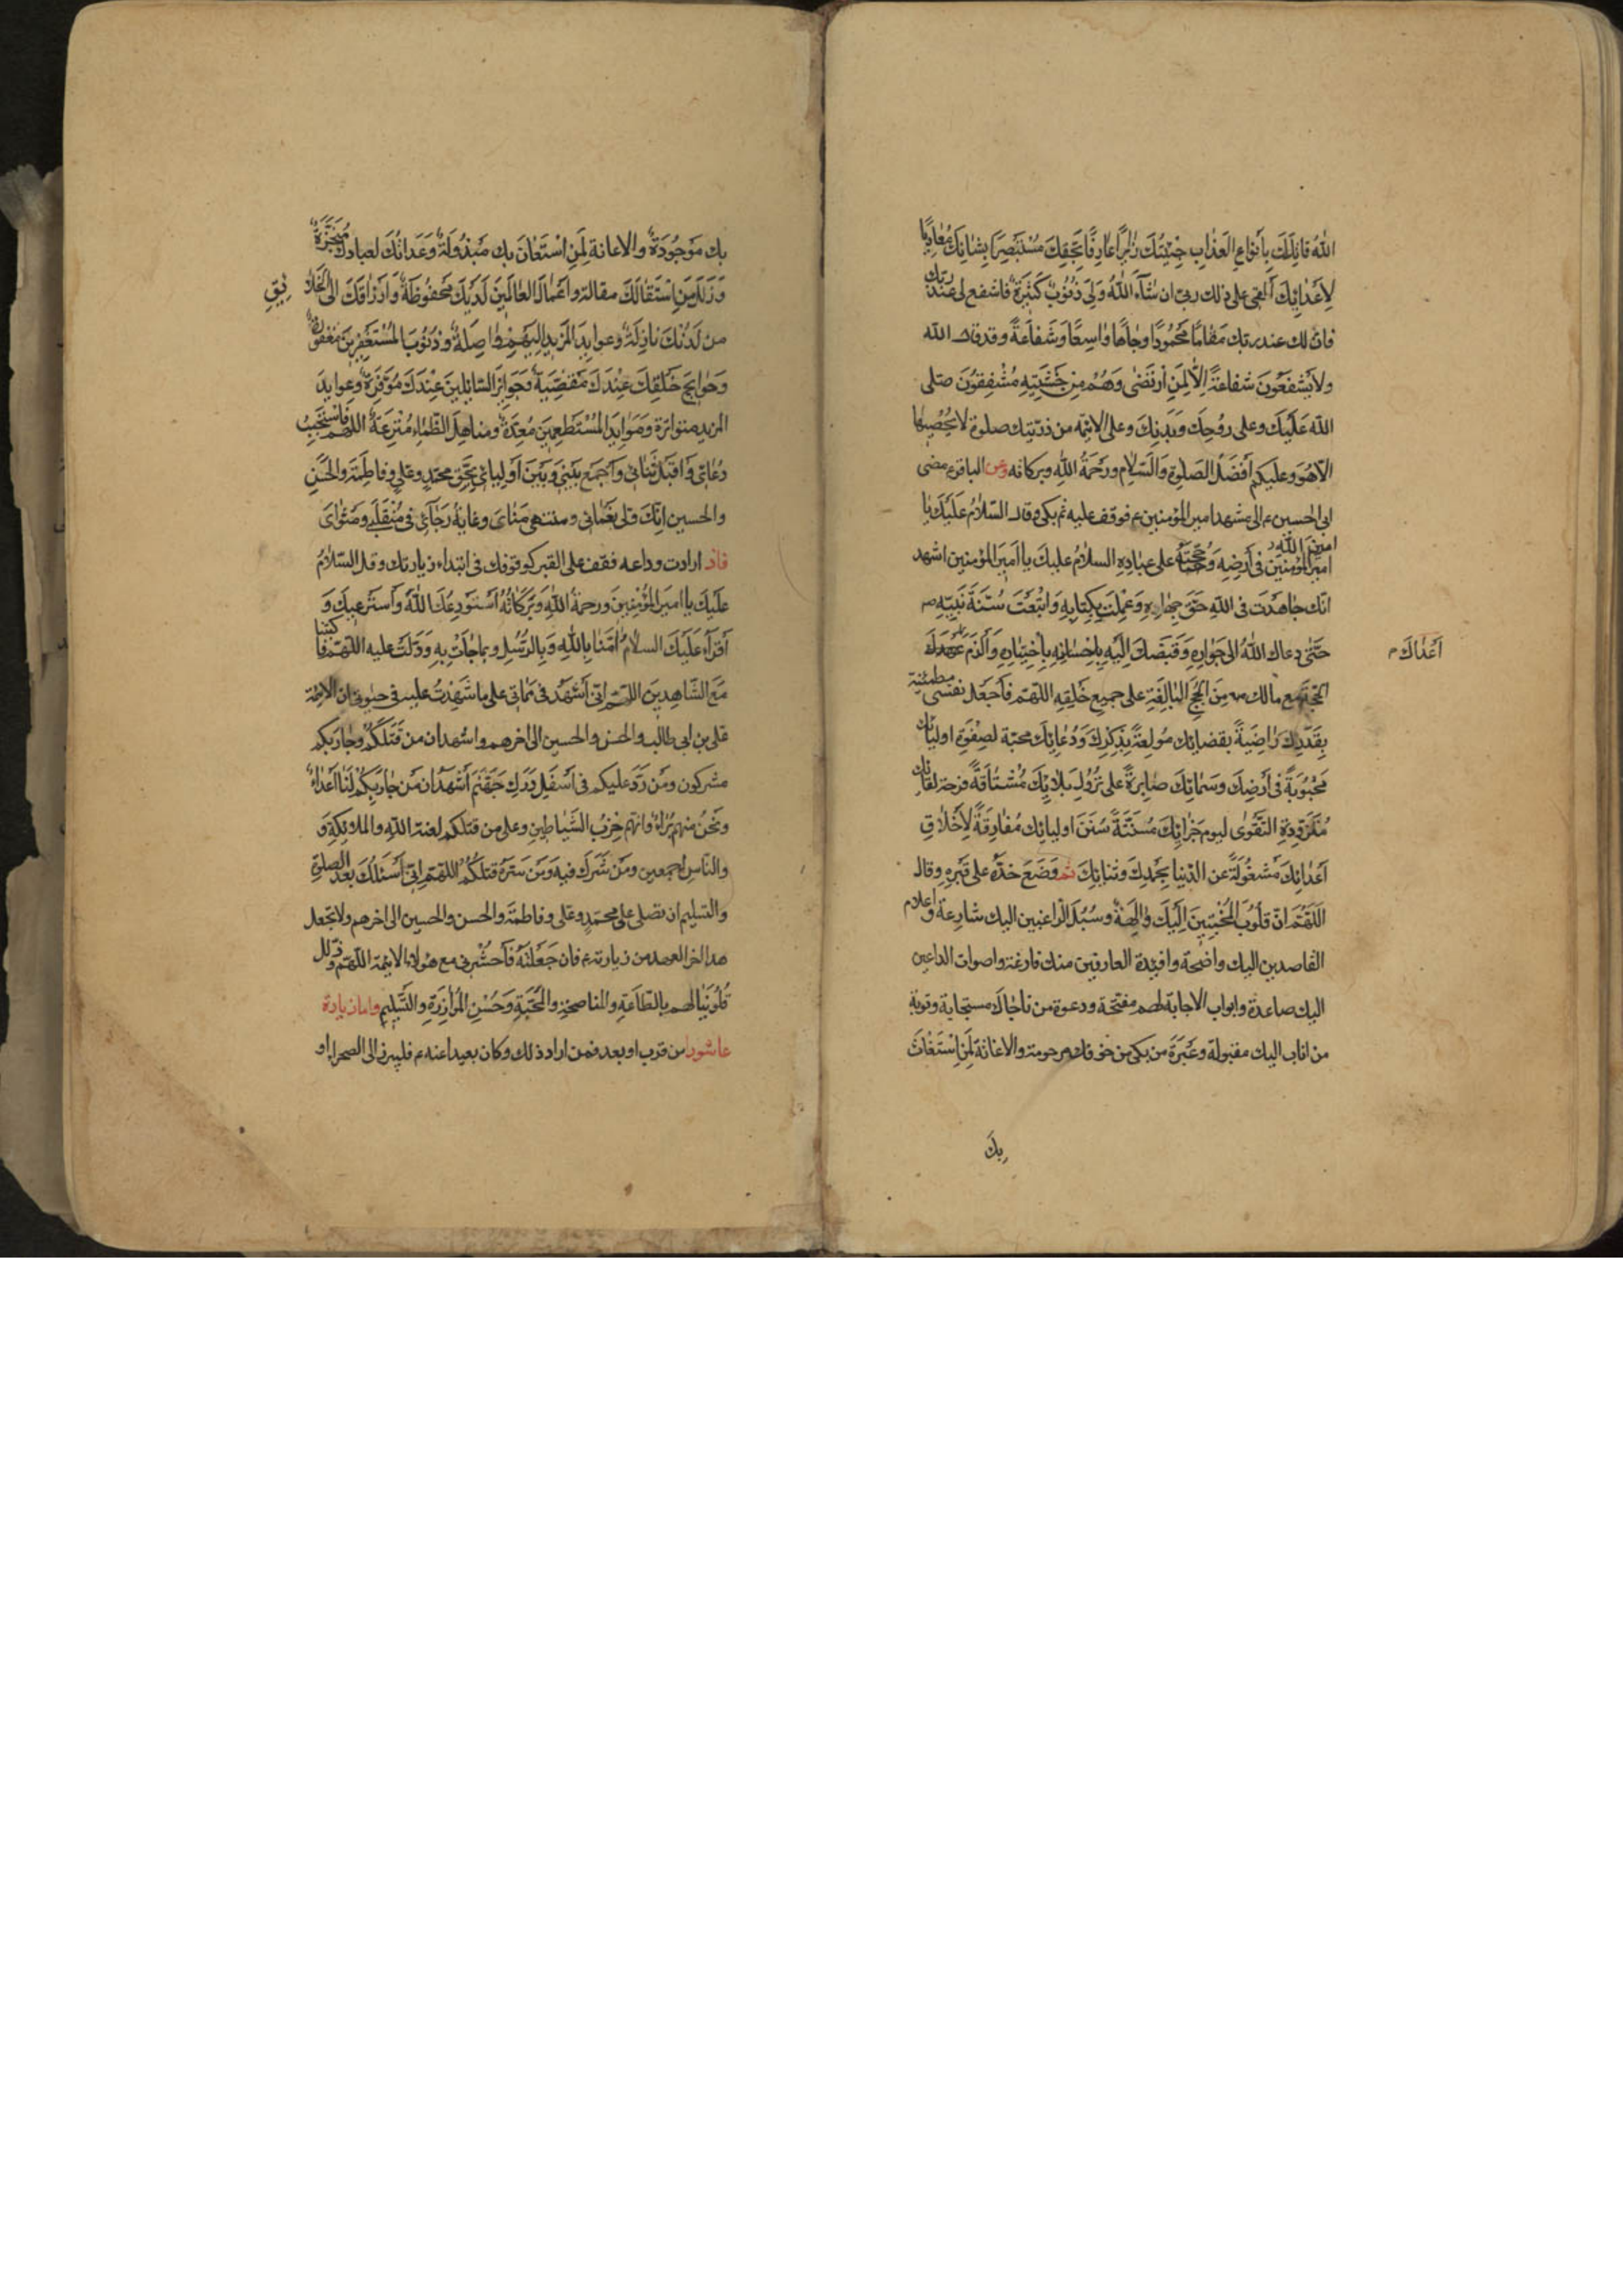 الله قاتلك بانواع العذاب جئتك زائرا عارفا بحقك مستبصرا بشانك معاديا
لاعدائك القى على ذلك ربى ان شآء الله ولى ذنوب كثيرة فاشفع لى عند ربك
فان لك عند ربك مقاما محمودا وجاها واسعا وشفاعة وقد قال الله
ولا يشفعون شفاعة الا لمن ارتضى وهم من خشيته مشفقون صلى
الله عليك وعلى روحك وبدنك وعلى الائمه من ذريتك صلوة لا يحصيها
الا هو وعليكم افضل الصلوة والسلام ورحمة الله وبركاته وعن الباقر ع مضى
ابى الحسين ع الى مشهد امير المؤمنين ع فوقف عليه ثم بكى وقال السلام عليك يا
امين الله
امير المؤمنين فى ارضه وحجته على عباده السلام عليك يا امير المؤمنين اشهد
انك جاهدت فى الله حق جهاده وعملت بكتابه واتبعت سنة نبيه ص
حتى دعاك الله الى جواره وقبضك اليه باحسانه باختياره والزم
اعداك م
الحجة مع مالك من الحجج البالغة على جميع خلقه اللهم فاجعل نفسى مطمئنة
بقدرك راضية بقضائك مولعة بذكرك ودعائك محبة لصفوة اوليائك
محبوبة فى ارضك وسمائك صابرة على نزول بلائك مشتاقة فرحة لقائك
متزودة التقوى ليوم جزائك مستنة سنن اوليائك مفارقة لاخلاق
اعدائك مشغولة عن الدنيا بحمدك وثنائك ثم وضع خده على قبره وقال
اللهم ان قلوب المخبتين اليك والهة وسبل الراغبين اليك شارعة واعلام
القاصدين اليك واضحة وافئدة العارفين منك فازغة واصوات الداعين
اليك صاعدة وابواب الاجابة لهم مفتحة ودعوة من ناجاك مستجابة وتوبة
من اناب اليك مقبولة وعبرة من بكى من خوفك مرحومة والاغاثة لمن استغاث
بك
بك موجودة والاعانة لمن استعان بك مبذولة وعداتك لعبادك منجزة
وزلل من استقالك مقالة واعمال العالمين لديك محفوظة وارزاقك الى الخلا
ئق
من لدنك نازلة وعوايد المزيد اليهم واصلة وذنوب المستغفرين مغفورة
وحوايج خلقك عندك مقضية وجوائز السائلين عندك موفرة وعوايد
المزيد متواترة وموايد المستطعمين معدة ومناهل الظماء مترعة اللهم فاستجب
دعائى واقبل ثنائى واجمع بينى وبين اوليائى بحق محمد وعلى وفاطمة والحسن
والحسين انك ولى نعمائى ومنتهى مناى وغاية رجائى فى منقلبى ومثواى
فاذ ارادت وداعه فقف على القبر كوقوفك فى ابتداء زيارتك وقل السلام
عليك يا امير المؤمنين ورحمة الله وبركاته استودعك الله واسترعيك و
اقراء عليك السلام امنا بالله وبالرسل وبما جاءت به ودلت عليه اللهم فاكتبنا
مع الشاهدين اللهم انى اشهد فى مماتى على ما شهدت عليه فى حيوتى ان الائمة
على بن ابى طالب والحسن والحسين الى اخرهم واشهد ان من قتلكم وحاربكم
مشركون ومن رد عليكم فى اسفل درك جهنم اشهد ان من حاربكم لنا اعداء
ونحن منهم براء وانهم حزب الشياطين وعلى من قتلكم لعنة الله والملائكة و
والناس اجمعين ومن شرك فيه ومن سره قتلكم اللهم انى اسئلك بعد الصلوة
والتسليم ان تصلى على محمد وعلى وفاطمة والحسن والحسين الى اخرهم ولا تجعل
هذا اخر العهد من زيارته ع فان جعلته فاحشرنى مع هولاء الائمة اللهم وذلل
قلوبنا لهم بالطاعة والمناصحة والمحبة وحسن المؤازرة والتسليم واما زيارة
عاشورا من قرب او بعد فمن اراد ذلك وكان بعيدا عنه ع فليبرز الى الصحرا او